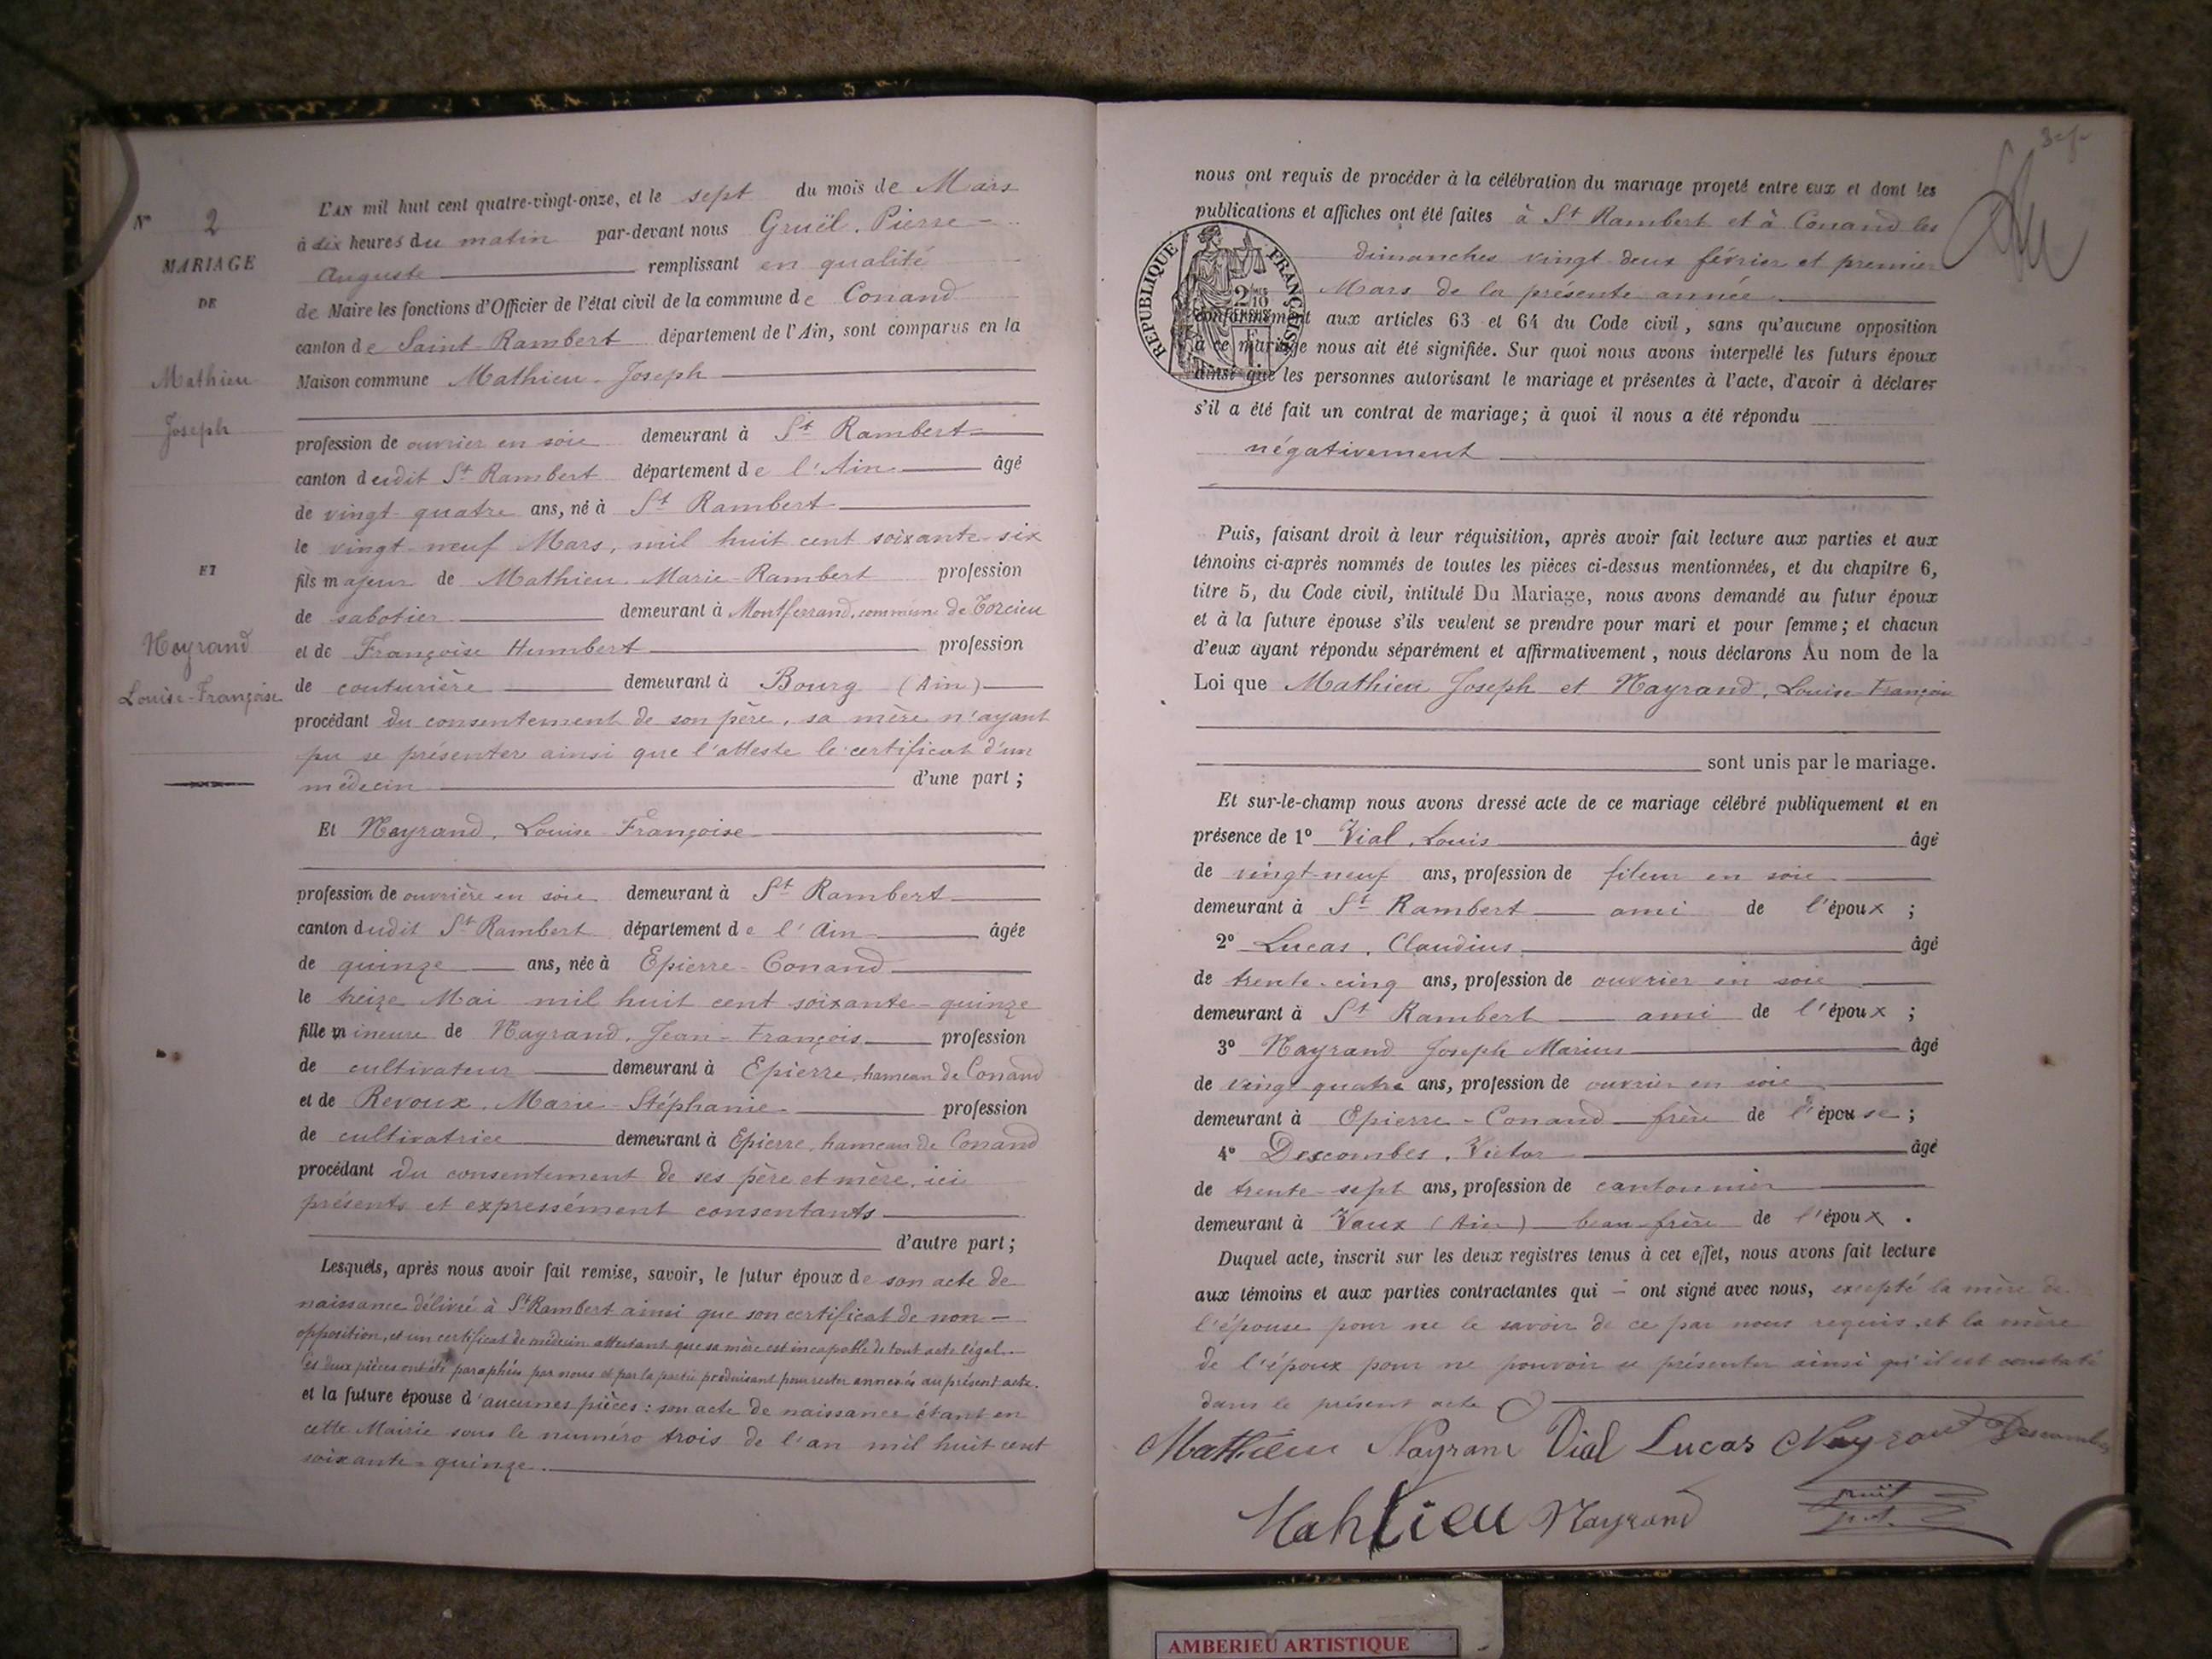 N° 2
MARIAGE
DE
Mathieu
Joseph
ET
Nayrand
Louise-Françoise
L'AN mil huit cent quatre-vingt-onze, et le sept du mois de Mars
à dix heures du matin par-devant nous Gruël. Pierre
Auguste remplissant en qualité
de Maire les fonctions d'Officier de l'état civil de la commune de Conand
canton de Saint-Rambert département de l'Ain, sont comparus en la
Maison commune Mathieu. Joseph
profession de ouvrier en soie demeurant à St Rambert
canton dudit St Rambert département de l'Ain âgé
de vingt-quatre ans, né à St Rambert
le vingt-neuf Mars, mil huit cent soixante-six
fils majeur de Mathieu. Marie-Rambert profession
de sabotier demeurant à Montferrand, commune de Torcieu
et de Françoise Humbert profession
de couturière demeurant à Bourg (Ain)
procédant du consentement de son père, sa mère n'ayant
pu se présenter ainsi que l'atteste le certificat d'un
médecin d'une part ;
Et Nayrand, Louise-Françoise
profession de ouvrière en soie demeurant à St Rambert
canton dudit St Rambert département de l'Ain âgée
de quinze ans, née à Epierre-Conand
le treize Mai mil huit cent soixante-quinze
fille mineure de Nayrand, Jean-François profession
de cultivateur demeurant à Epierre, hameau de Conand
et de Revoux, Marie-Stéphanie profession
de cultivatrice demeurant à Epierre, hameau de Conand
procédant du consentement de ses père et mère, ici
présents et expressément consentants
d'autre part ;
Lesquels, après nous avoir fait remise, savoir, le futur époux de son acte de
naissance délivré à St Rambert ainsi que son certificat de non-
opposition, et un certificat de médecin attestant que sa mère est incapable de tout acte légal.
Ces deux pièces ont été paraphées par nous et par la partie produisant pour rester annexés au présent acte.
et la future épouse d'aucunes pièces : son acte de naissance étant en
cette Mairie sous le numéro trois de l'an mil huit cent
soixante-quinze.
nous ont requis de procéder à la célébration du mariage projeté entre eux et dont les
publications et affiches ont été faites à St Rambert et à Conand les
dimanches vingt-deux février et premier
Mars de la présente année
RÉPUBLIQUE FRANÇAISE
conformément aux articles 63 et 64 du Code civil, sans qu'aucune opposition
à ce mariage nous ait été signifiée. Sur quoi nous avons interpellé les futurs époux
ainsi que les personnes autorisant le mariage et présentes à l'acte, d'avoir à déclarer
s'il a été fait un contrat de mariage; à quoi il nous a été répondu
négativement
Puis, faisant droit à leur réquisition, après avoir fait lecture aux parties et aux
témoins ci-après nommés de toutes les pièces ci-dessus mentionnées, et du chapitre 6,
titre 5, du Code civil, intitulé Du Mariage, nous avons demandé au futur époux
et à la future épouse s'ils veulent se prendre pour mari et pour femme ; et chacun
d'eux ayant répondu séparément et affirmativement, nous déclarons Au nom de la
Loi que Mathieu Joseph et Nayrand, Louise-Françoise
sont unis par le mariage.
Et sur-le-champ nous avons dressé acte de ce mariage célébré publiquement et en
présence de 1° Vial, Louis âgé
de vingt-neuf ans, profession de fileur en soie
demeurant à St Rambert ami de l'époux ;
2° Lucas, Claudius âgé
de trente-cinq ans, profession de ouvrier en soie
demeurant à St Rambert ami de l'époux ;
3° Nayrand Joseph Marius âgé
de vingt-quatre ans, profession de ouvrier en soie
demeurant à Epierre-Conand frère de l'épouse ;
4° Descombes, Victor âgé
de trente-sept ans, profession de cantonnier
demeurant à Vaux (Ain) beau-frère de l'époux .
Duquel acte, inscrit sur les deux registres tenus à cet effet, nous avons fait lecture
aux témoins et aux parties contractantes qui - ont signé avec nous, excepté la mère de
l'épouse pour ne le savoir de ce par nous requis, et la mère
de l'époux pour ne pouvoir se présenter ainsi qu'il est constaté
dans le présent acte
Mathieu Nayrand Vial Lucas Nayrand Descombes
Mahtieu Nayrand
AMBERIEU ARTISTIQUE